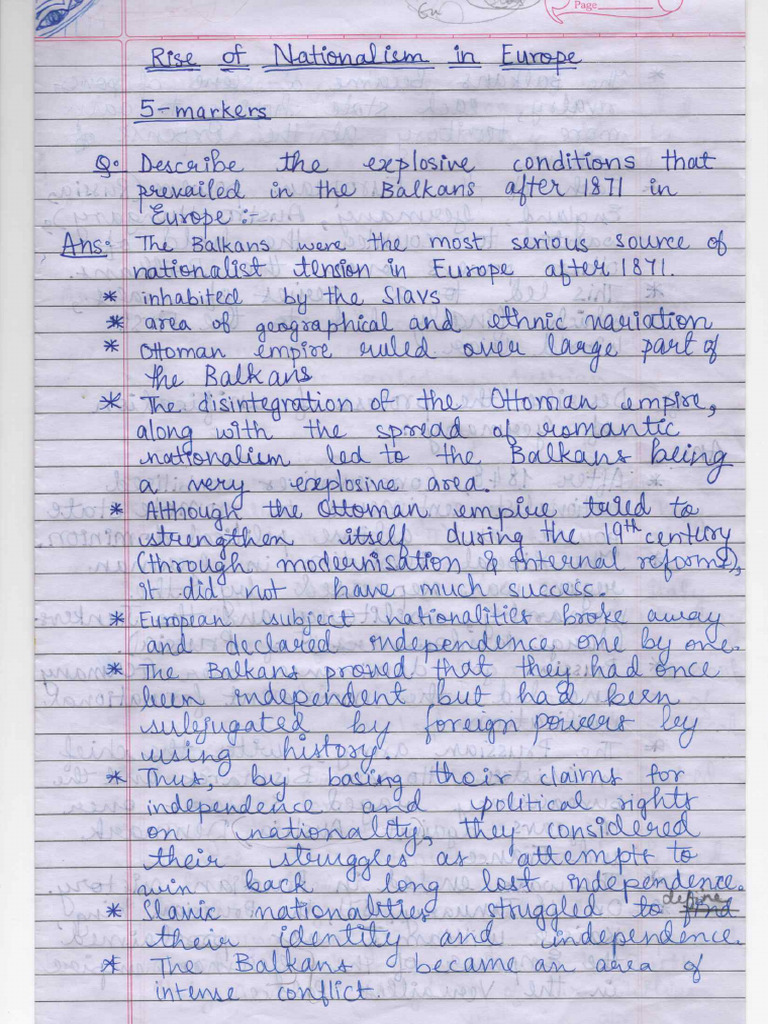 Page
Rise of Nationalism in Europe
5-markers
Q:- Describe the explosive conditions that
prevailed in the Balkans after 1871 in
Europe:-
Ans: The Balkans were the most serious source of
nationalist tension in Europe after 1871.
* inhabited by the Slavs
* area of geographical and ethnic variation
* Ottoman empire ruled over large part of
the Balkans
* The disintegration of the Ottoman empire,
along with the spread of romantic
nationalism led to the Balkans being
a very explosive area.
* Although the Ottoman empire tried to
strengthen itself during the 19th century
(through modernisation & internal reforms),
it did not have much success.
* European subject nationalities broke away
and declared independence one by one.
* The Balkans proved that they had once
been independent but had been
subjugated by foreign powers by
using history.
* Thus, by basing their claims for
independence and political rights
on nationality, they considered
their struggles as attempts to
win back long lost independence.
* Slavic nationalities struggled to find define
their identity and independence.
* The Balkans became an area of
intense conflict.